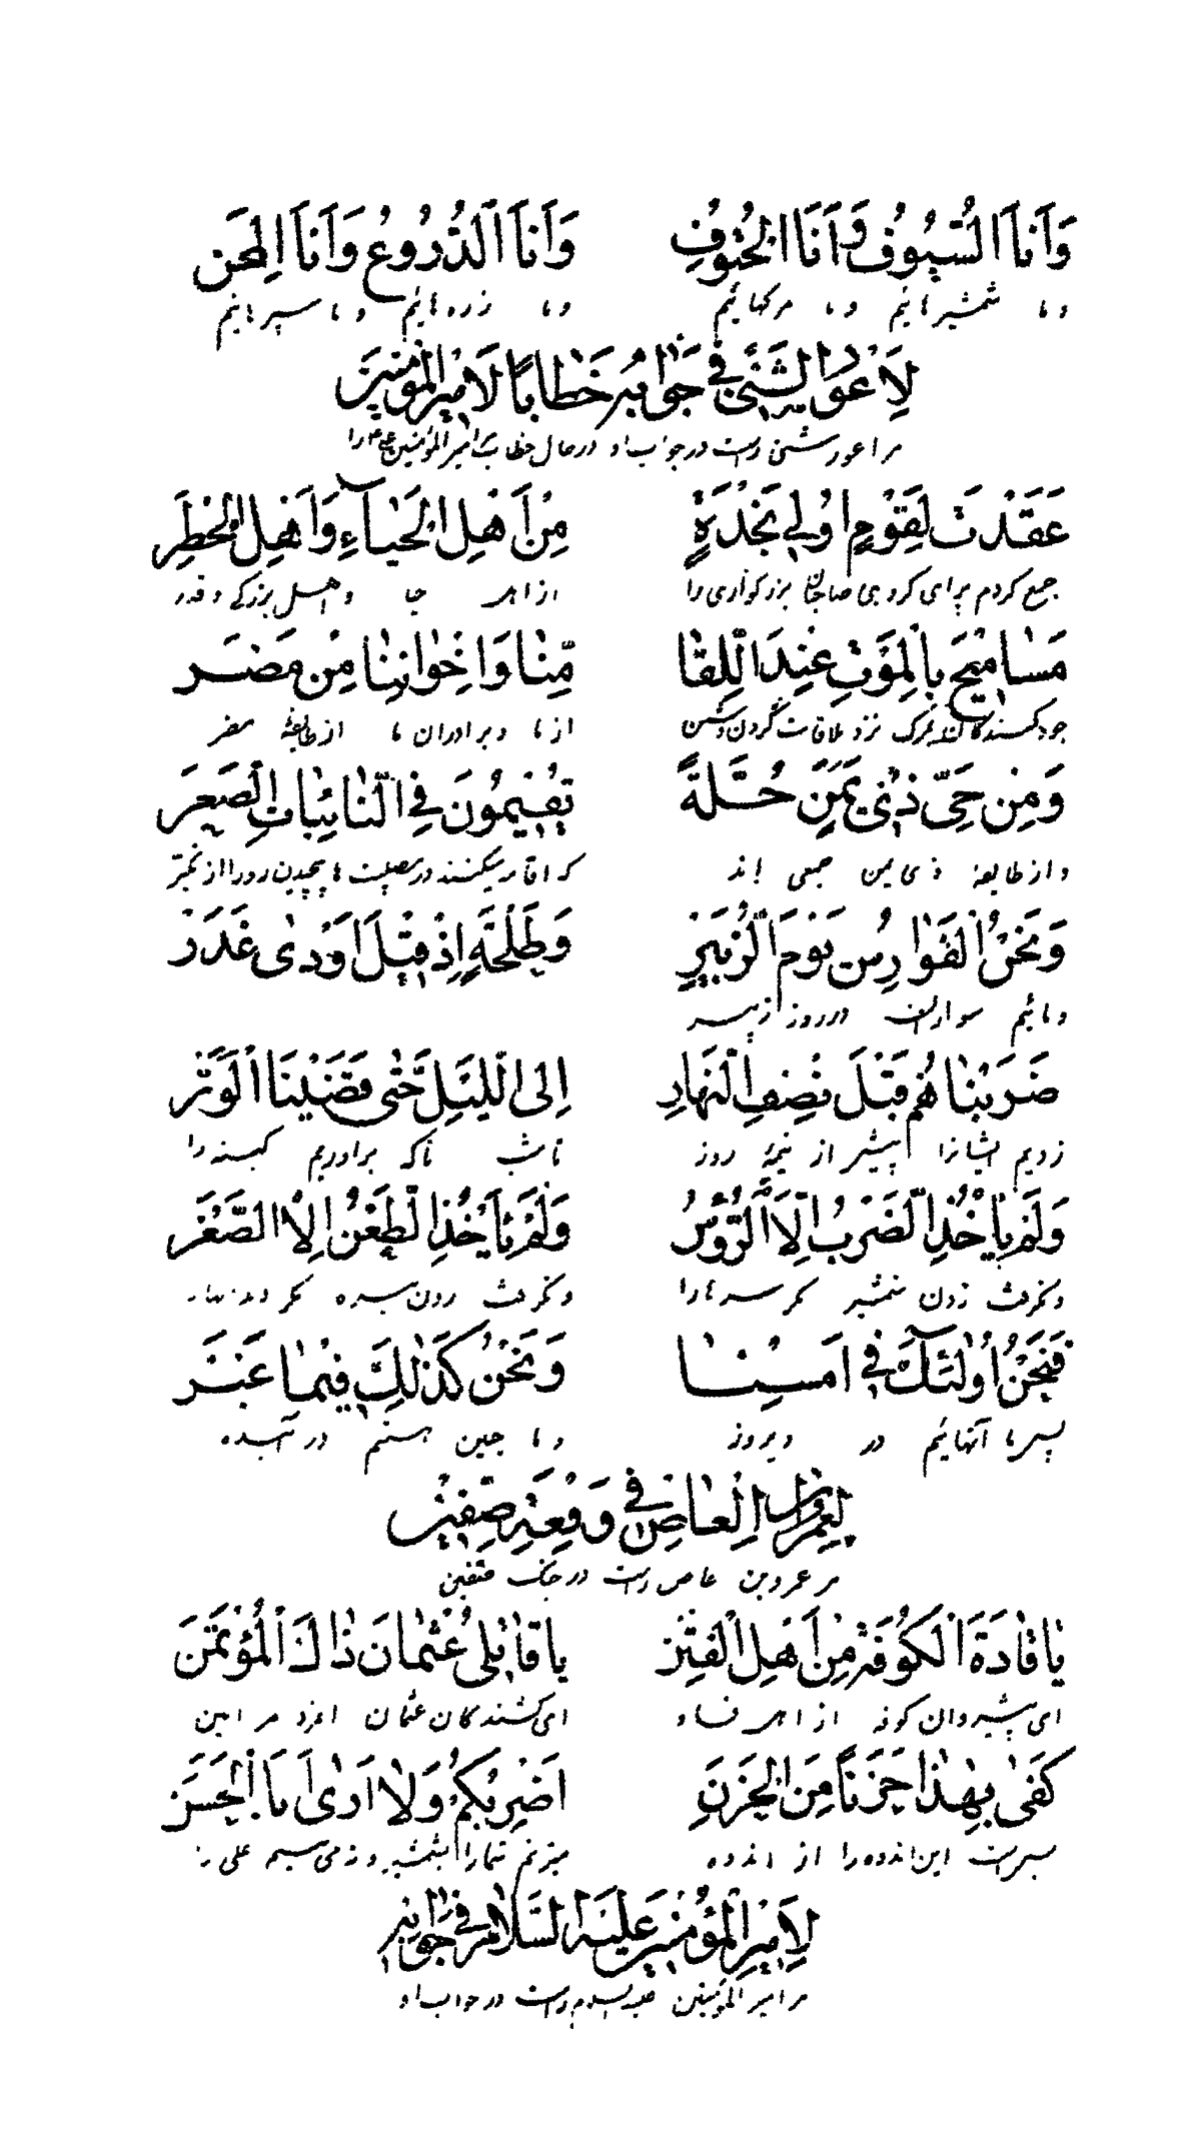 وَاَنَا السُّيُوفُ وَاَنَا الْحُتُوفُ وَاَنَا الدُّرُوعُ وَاَنَا الْمِجَن
و ما شمشیرهائیم و ما مرگهائیم و ما زره‌هائیم و ما سپرهائیم
لِاَعْوَرِ الشَّنّیِّ فی جَوابِهِ خِطاباً لِاَمیرِ الْمُؤْمِنینَ
مر اعور شنی راست در جواب او در حال خطاب بامیر المؤمنین ع را
عَقَدْتَ لِقَوْمٍ اُولی نَجْدَةٍ مِنْ اَهْلِ الْحَیاءِ وَاَهْلِ الْخَطَر
جمع کردم برای کروهی صاحبان بزرکواری را از اهل حیا و اهل بزرکی و قدر
مَسامیحَ بِالْمَوْتِ عِنْدَ اللِّقا مِنّا وَاِخْوانِنا مِنْ مُضَر
جود کنندکانند بمرک نزد ملاقات کردن دشمن از ما و برادران ما از طایفهٔ مضر
وَمِنْ حَیِّ ذی یَمَنٍ حُلَّةً یُقیمُونَ فِی النّائِباتِ الصَّعَر
و از طایفهٔ ذی یمن جمعی اند که اقامه میکنند در مصیبت ها پیچیدن رو را از تکبّر
وَنَحْنُ الْفَوارِسُ یَوْمَ الزُّبَیْرِ وَطَلْحَةَ اِذْ قیلَ اَوْدی غُدَر
و مائیم سواران در روز زبیر
ضَرَبْناهُمْ قَبْلَ نِصْفِ النَّهارِ اِلَی اللَّیْلِ حَتّی قَضَیْنَا الْوَتَر
زدیم ایشانرا پیش از نیمهٔ روز تا شب تا که برآوردیم کینه را
وَلَمْ یَاْخُذِ الضَّرْبُ اِلَّا الرُّؤُسَ وَلَمْ یَاْخُذِ الطَّعْنُ اِلَّا الثُّغَر
و نکرفت زدن شمشیر مکر سرها را و نکرفت زدن نیزه مکر
فَنَحْنُ اُولئِکَ فی اَمْسِنا وَنَحْنُ کَذلِکَ فیما غَبَر
پس ما آنهائیم در دیروز و ما چنین هستیم در آینده
لِعَمْرِو بْنِ الْعاصِ فی وَقْعَةِ صِفّین
مر عمرو بن عاص راست در جنک صفین
یا قادَةَ الْکُوفَةِ مِنْ اَهْلِ الْفِتَن یا قاتِلی عُثْمانَ ذاكَ الْمُؤْتَمَن
ای پیشروان کوفه از اهل فساد ای کشندکان عثمان آنمرد مر امین
کَفی بِهذا حَزَناً مِنَ الْحَزَن اَضْرِبُکُمْ وَلا اَری اَبَا الْحَسَن
بس است این اندوه را از اندوه میزنم شما را بشمشیر و نمی بینم علی را
لِاَمیرِ الْمُؤْمِنینَ عَلَیْهِ السَّلامُ فی جَوابِهِ
مر امیر المؤمنین علیه السلام راست در جواب او